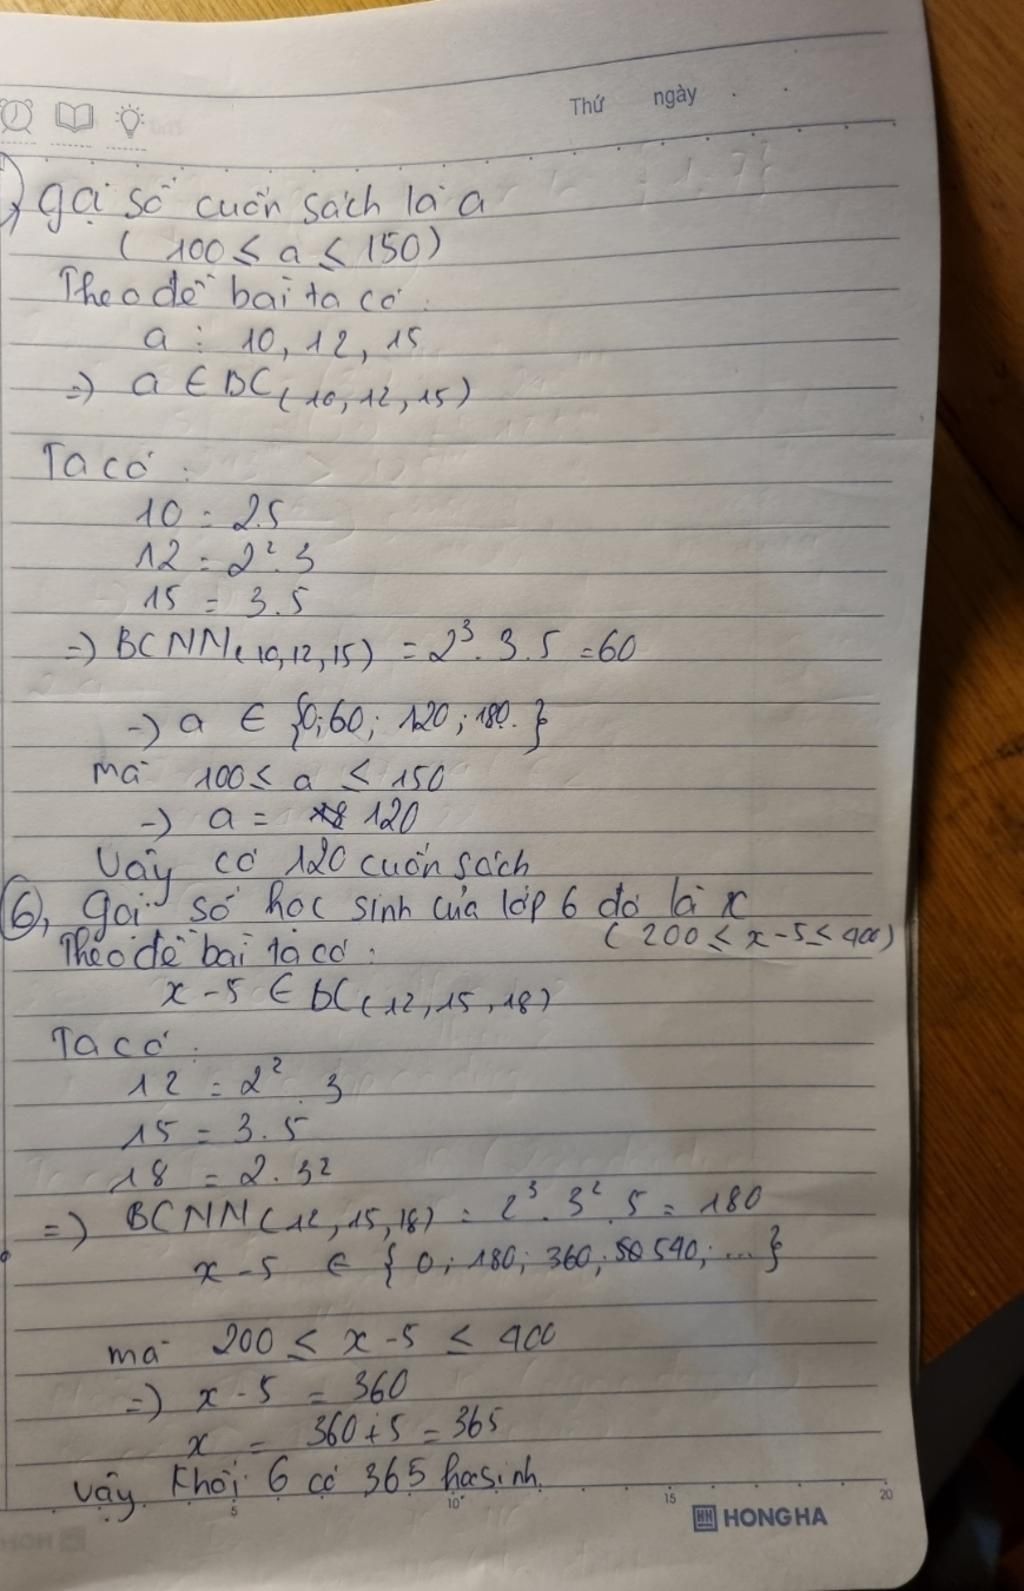 Thứ ngày
gọi số cuốn sách là a
( 100 ≤ a ≤ 150)
Theo đề bài ta có :
a ⋮ 10, 12, 15
=) a ∈ BC ( 10, 12, 15)
Ta có :
10 = 2.5
12 = 2². 3
15 = 3.5
=) BCNN( 10,12,15) = 2³. 3.5 =60
-) a ∈ {0;60; 120; 180. }
mà 100 ≤ a ≤ 150
-) a = 120
Vậy có 120 cuốn sách
6, gọi số học sinh của lớp 6 đó là x
( 200 ≤ x-5 ≤ 400)
Theo đề bài ta có :
x - 5 ∈ BC ( 12, 15, 18)
Ta có :
12 = 2² . 3
15 = 3.5
18 = 2.3²
=) BCNN ( 12, 15, 18) = 2³. 3². 5 = 180
x - 5 ∈ { 0; 180; 360; 540; ... }
mà 200 ≤ x - 5 ≤ 400
=) x - 5 = 360
x = 360+5 = 365
Vậy khối 6 có 365 học sinh.
5 10 15 20
HH HONG HA